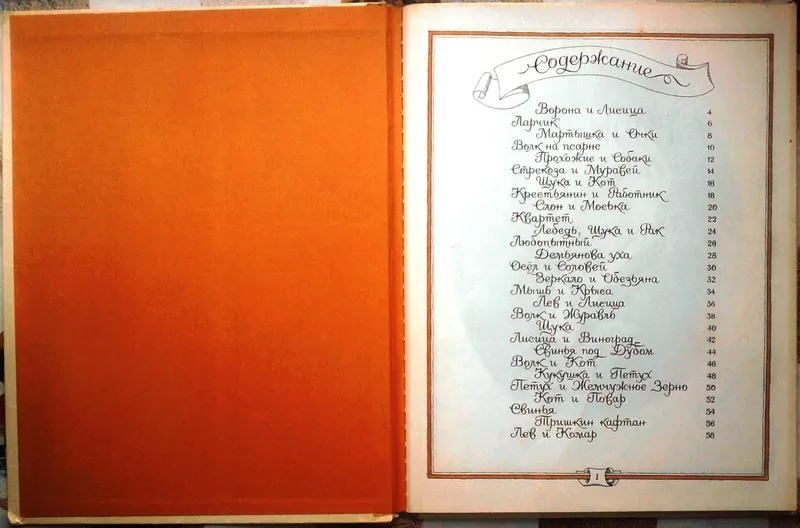 Содержание
Ворона и Лисица 4
Ларчик 6
Мартышка и Очки 8
Волк на псарне 10
Прохожие и Собаки 12
Стрекоза и Муравей 14
Щука и Кот 16
Крестьянин и Работник 18
Слон и Моська 20
Квартет 22
Лебедь, Щука и Рак 24
Любопытный 26
Демьянова уха 28
Осёл и Соловей 30
Зеркало и Обезьяна 32
Мышь и Крыса 34
Лев и Лисица 36
Волк и Журавль 38
Щука 40
Лисица и Виноград 42
Свинья под Дубом 44
Волк и Кот 46
Кукушка и Петух 48
Петух и Жемчужное Зерно 50
Кот и Повар 52
Свинья 54
Тришкин кафтан 56
Лев и Комар 58
1